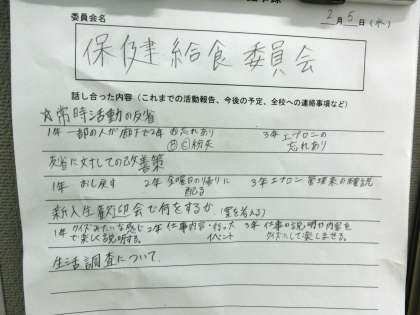 委員会名
2月5日(水)
保健給食委員会
話し合った内容(これまでの活動報告、今後の予定、全校への連絡事項など)
☆常時活動の反省
1年 一部の人が廊下で 2年 忘れあり 3年 エプロンの
紛失 忘れあり
反省に対しての改善策
1年 おし戻す 2年 金曜日の帰りに 3年 エプロン 管理系の確認
配る
新入生歓迎会で何をするか(案を考える)
1年 クイズみたいな感じ 2年 仕事内容・行った 3年 仕事の説明や内容を
で楽しく説明する。 イベント クイズにして楽しませる。
生活調査について